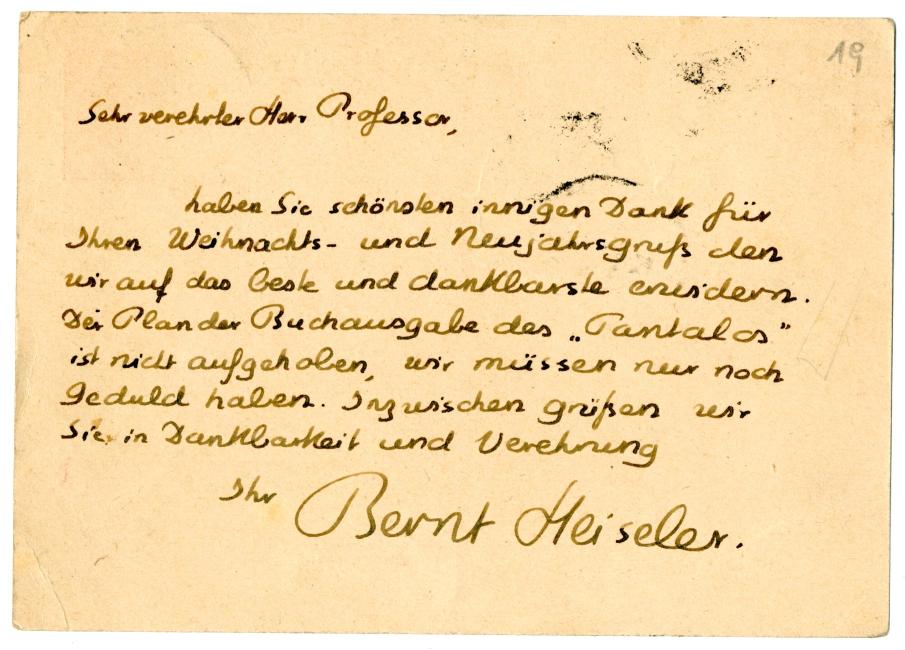 19
Sehr verehrter Herr Professor,
haben Sie schönsten innigen Dank für
Ihren Weihnachts- und Neujahrsgruß den
wir auf das beste und dankbarste erwidern.
Der Plan der Buchausgabe des „Tantalos"
ist nicht aufgehoben, wir müssen nur noch
Geduld haben. Inzwischen grüßen wir
Sie in Dankbarkeit und Verehrung
Ihr Bernt Heiseler.